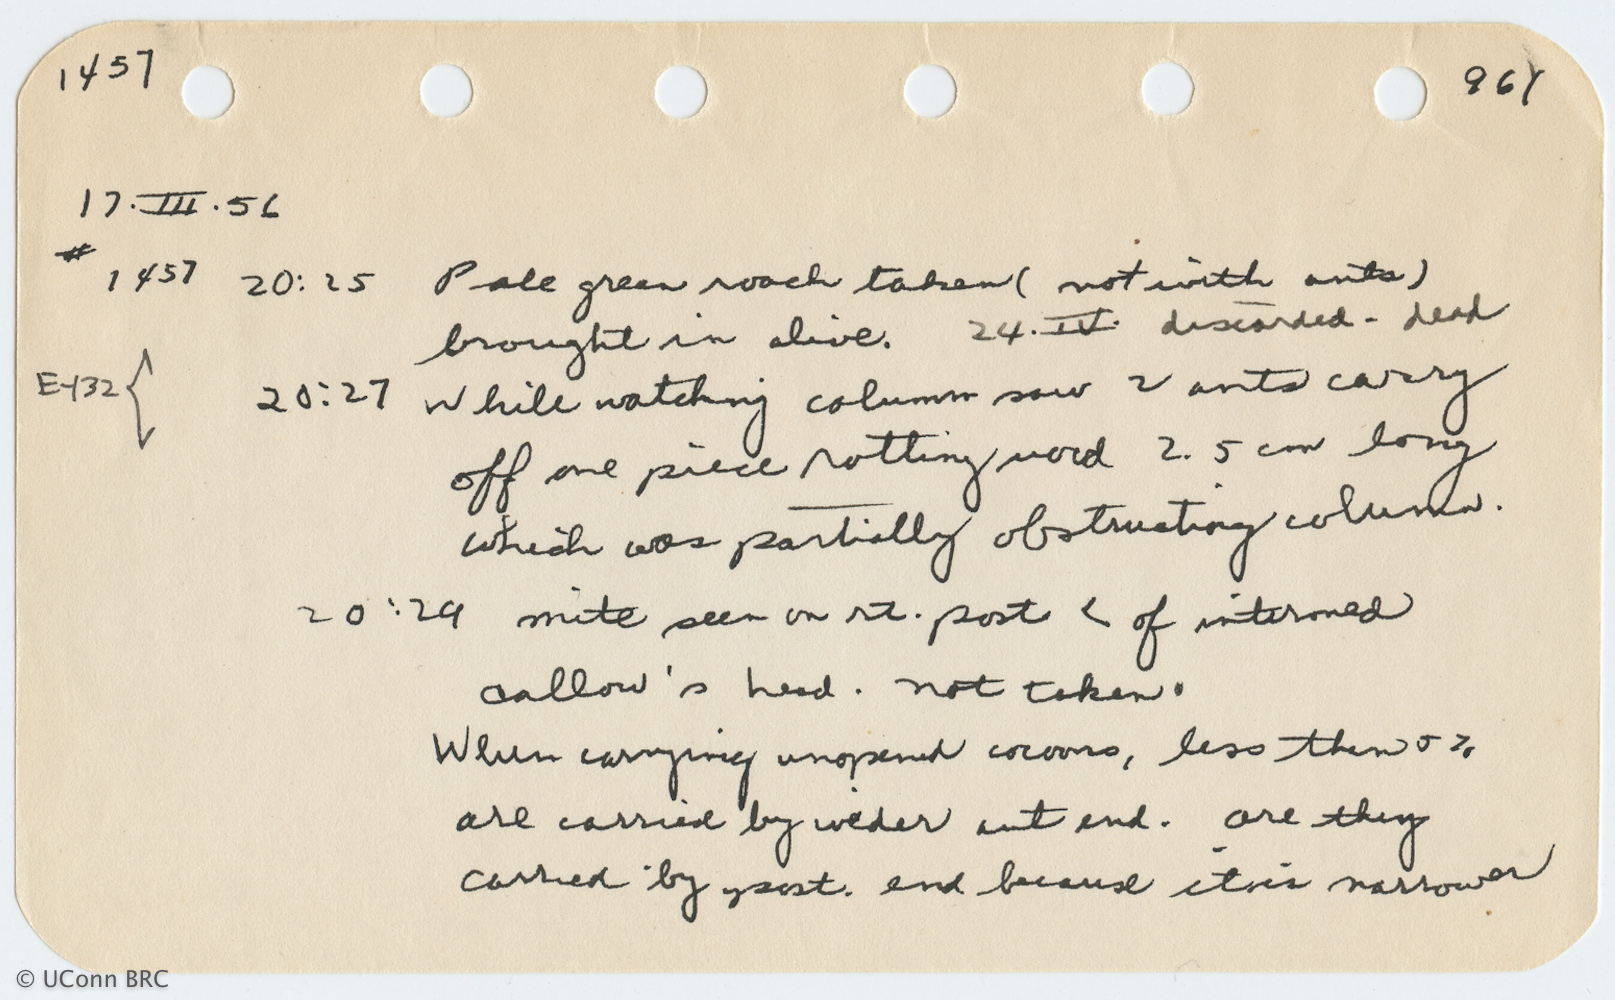 1457 96Y
17.III.56
# 1457 20:25 Pale green roach taken (not with ants)
brought in alive. 24.IV. discarded - dead
E-432 { 20:27 While watching column saw 2 ants carry
off one piece rotting wood 2.5 cm long
which was partially obstructing column.
20:29 mite seen on rt. post < of intermed
callow's head. not taken.
When carrying unopened cocoons, less than 5%
are carried by wider ant end. are they
carried by post. end because it is narrower
© UConn BRC